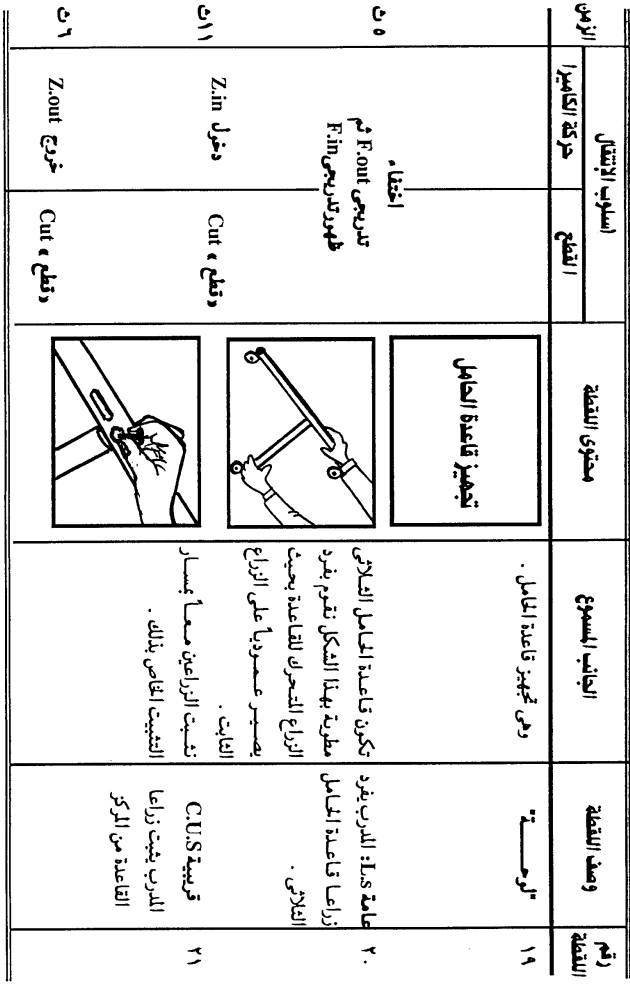 رقم
اللقطة
وصف اللقطة
الجانب المسموع
محتوى اللقطة
اسلوب الإنتقال
القطع
حركة الكاميرا
الزمن
١٩
"لوحـــــة"
وهى تجهيز قاعدة الحامل .
تجهيز قاعدة الحامل
اختفاء
تدريجى F.out ثم
ظهورتدريجىF.in
٥ ث
٢٠
عامة L.s: المدرب يفرد
زراعـا قـاعـدة الحـامل
الثلاثى .
تكون قاعـدة الحـامل الثـلاثى
مطوية بهـذا الشكل نقـوم بفـرد
الزراع المتـحرك للقـاعدة بحـيث
يصـيـر عـمـودياً على الزراع
الثابت .
«قطع» Cut
دخول Z.in
١١ ث
٢١
قريبية C.U.S
المدرب يثبت زراعا
القاعدة من المركز
نشـبت الزراعين مـعـاً بمسـار
التثبيت الخاص بذلك .
«قطع» Cut
خروج Z.out
٦ ث